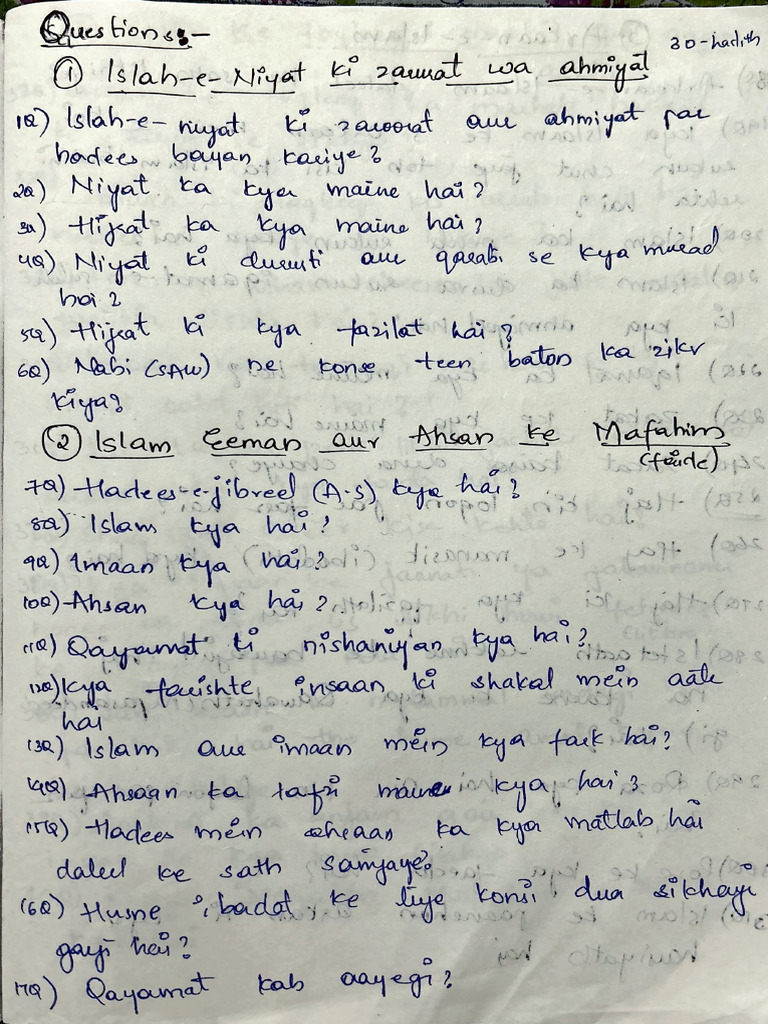 Questions:-
30-hadith
① Islah-e-Niyat ki zarurat wa ahmiyat
1Q) Islah-e-niyat ki zaroorat aur ahmiyat par
hadees bayan kariye?
2Q) Niyat ka kya maine hai?
3Q) Hijrat ka kya maine hai?
4Q) Niyat ki durusti aur qarabi se kya murad
hai?
5Q) Hijrat ki kya fazilat hai?
6Q) Nabi (SAW) ne konse teen baton ka zikr
kiya?
② Islam Eeman aur Ahsan ke Mafahim
(faide)
7Q) Hadees-e-jibreel (A.S) kya hai?
8Q) Islam kya hai?
9Q) Imaan kya hai?
10Q) Ahsan kya hai?
11Q) Qayamat ki nishaniyan kya hai?
12Q) Kya farishte insaan ki shakal mein aate
hai
13Q) Islam aur imaan mein kya fark hai?
14Q) Ahsaan ka lafzi maine kya hai?
15Q) Hadees mein ehsaan ka kya matlab hai
daleel ke sath samjaye?
16Q) Husne ibadat ke liye konsi dua sikhayi
gayi hai?
17Q) Qayamat kab aayegi?